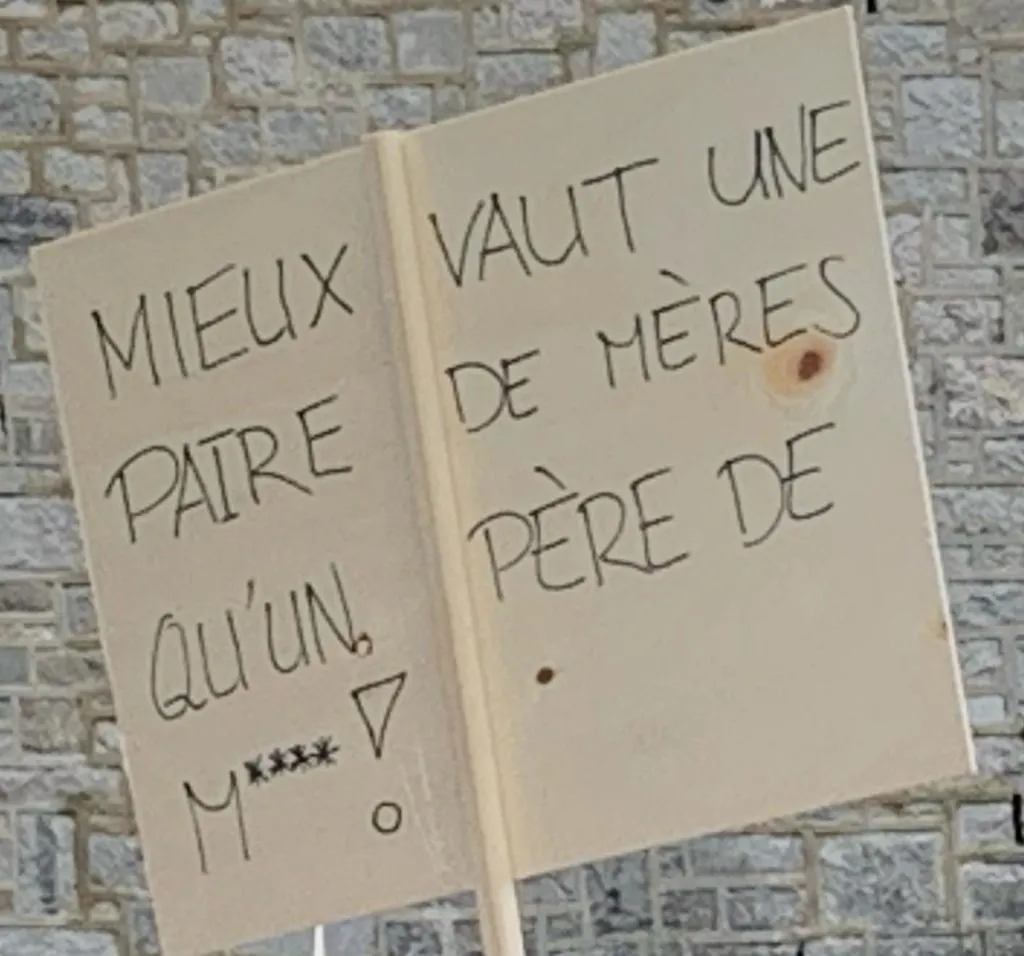 MIEUX VAUT UNE
PAIRE DE MÈRES
QU'UN PÈRE DE
M**** !